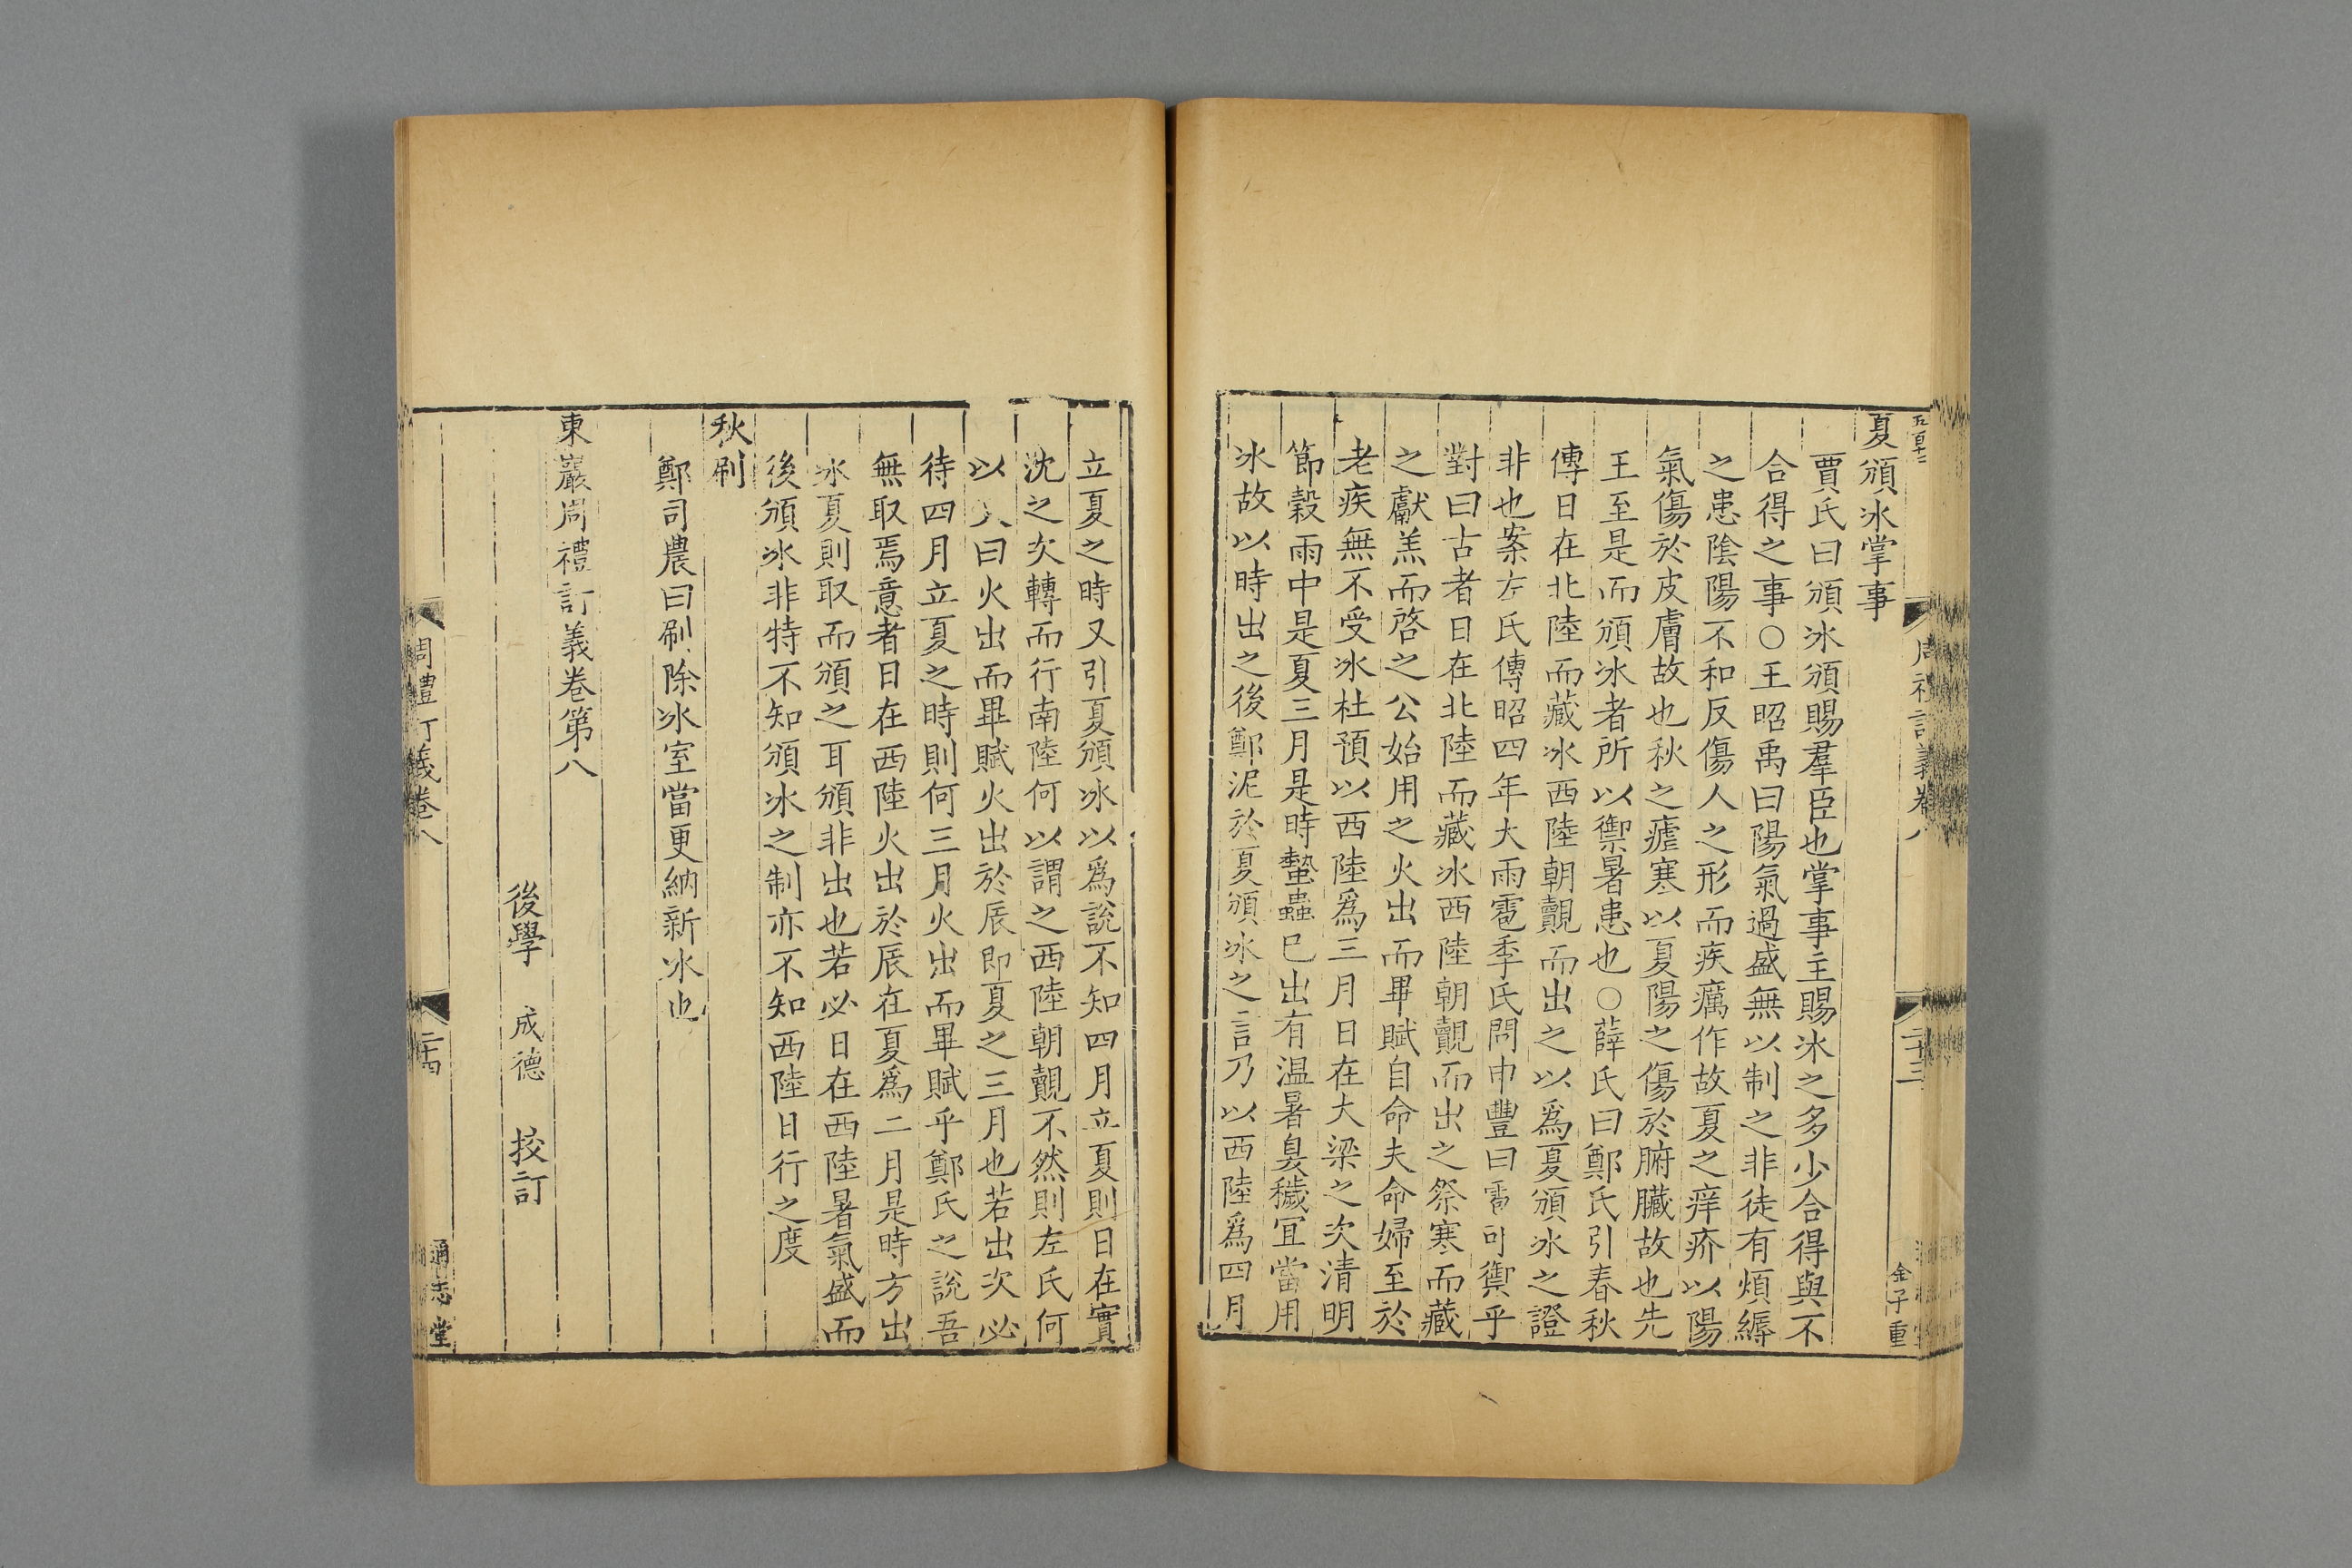 五百十二
周禮訂義卷八
二十三
金子重
夏頒冰掌事
賈氏曰頒冰頒賜羣臣也掌事主賜冰之多少合得與不
合得之事○王昭禹曰陽氣過盛無以制之非徒有煩縟
之患陰陽不和反傷人之形而疾癘作故夏之痒疥以陽
氣傷於皮膚故也秋之瘧寒以夏陽之傷於腑臟故也先
王至是而頒冰者所以禦暑患也○薛氏曰鄭氏引春秋
傳日在北陸而藏冰西陸朝覿而出之以為夏頒冰之證
非也案左氏傳昭四年大雨雹季氏問申豐曰雹可禦乎
對曰古者日在北陸而藏冰西陸朝覿而出之祭寒而藏
之獻羔而啓之公始用之火出而畢賦自命夫命婦至於
老疾無不受冰杜預以西陸爲三月日在大梁之次清明
節穀雨中是夏三月是時蟄蟲已出有温暑臭穢宜當用
冰故以時出之後鄭泥於夏頒冰之言乃以西陸爲四月
立夏之時又引夏頒冰以爲說不知四月立夏則日在實
沈之次轉而行南陸何以謂之西陸朝覿不然則左氏何
以曰火出而畢賦火出於辰即夏之三月也若出次必
待四月立夏之時則何三月火出而畢賦乎鄭氏之說吾
無取焉意者日在西陸火出於辰在夏爲二月是時方出
冰夏則取而頒之耳頒非出也若必日在西陸暑氣盛而
後頒冰非特不知頒冰之制亦不知西陸日行之度
秋刷
鄭司農曰刷除冰室當更納新冰也
東巖周禮訂義卷第八
後學 成德 挍訂
周禮訂義卷八
二十四
通志堂